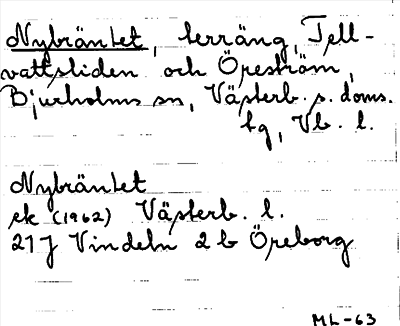 Nybräntet, terräng, Tell-
vattsliden och Öreström,
Bjurholms sn, Västerb. s. doms.
tg, Vb. l.
Nybräntet
ek (1962) Västerb. l.
21 J Vindeln 2 b Öreborg
ML-63